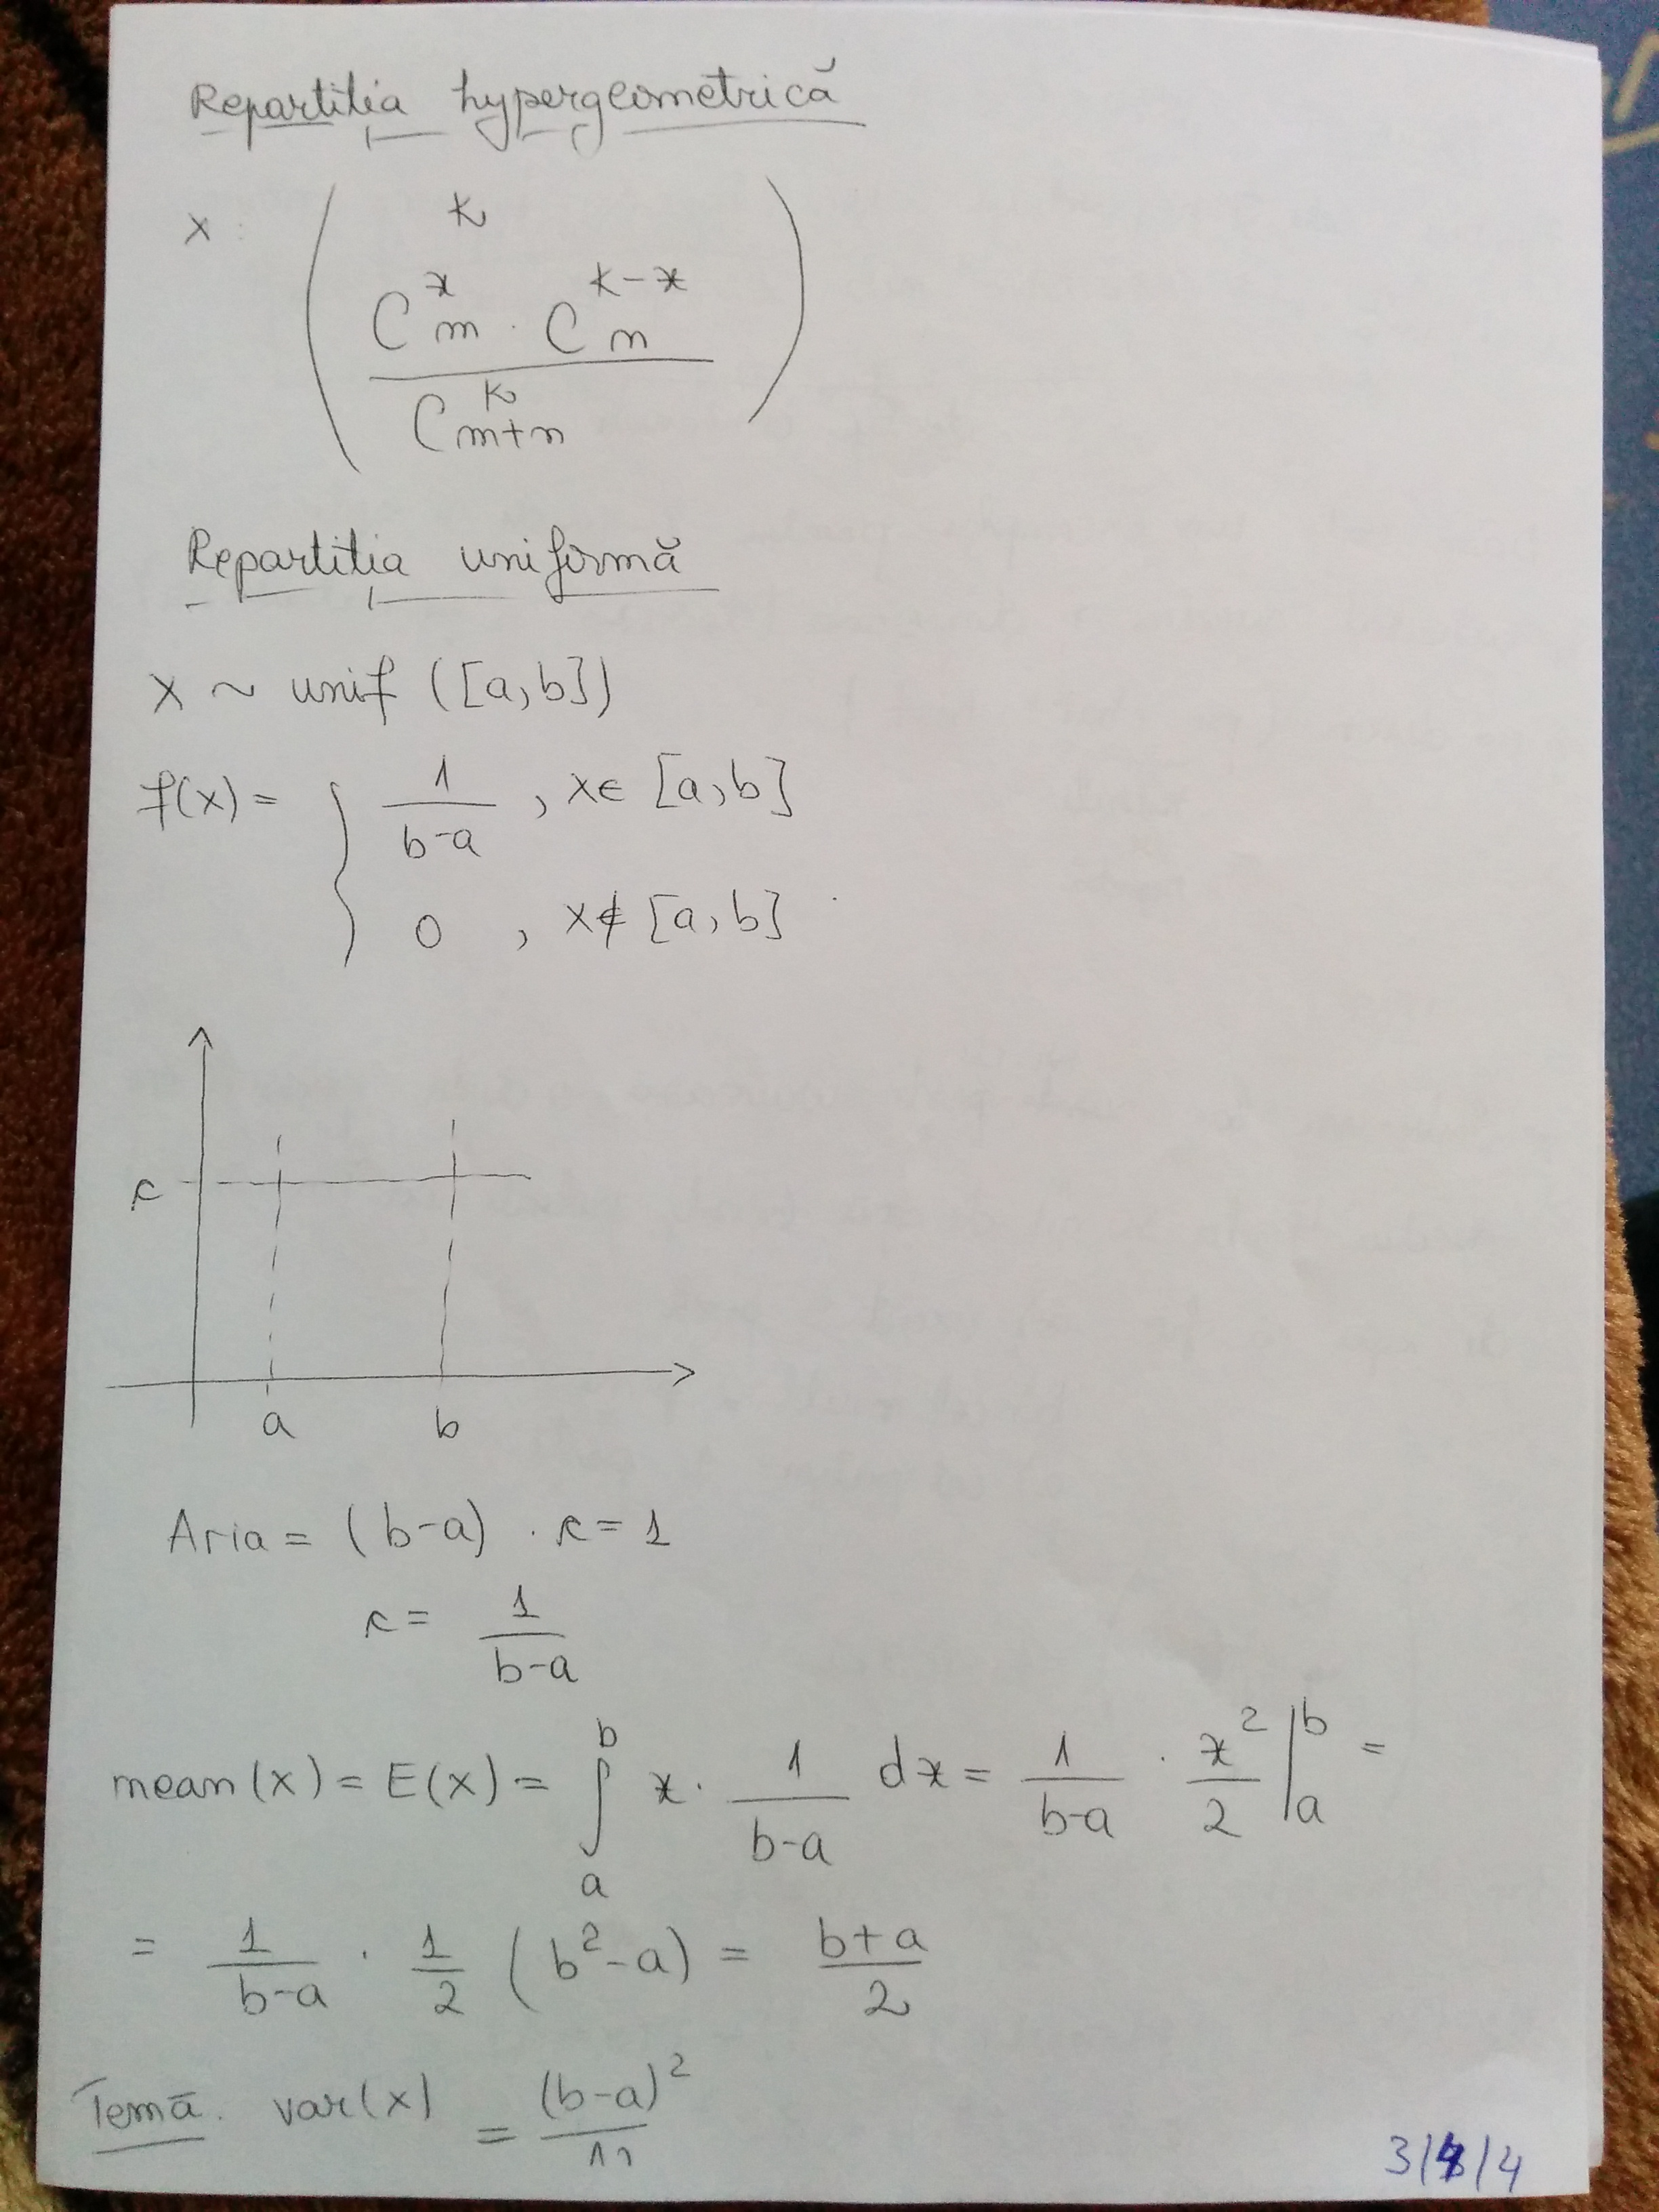 Repartiția hypergeometrică
X :
k
C_m^x · C_n^{k-x}
C_{m+n}^k
Repartiția uniformă
X ~ unif ([a,b])
f(x) = { 1/(b-a) , x∈ [a,b]
0 , x∉ [a,b]
c
a b
Aria = (b-a) · c = 1
c = 1/(b-a)
mean(x) = E(x) = ∫_a^b x · 1/(b-a) dx = 1/(b-a) · x²/2 |_a^b =
= 1/(b-a) · 1/2 (b²-a) = (b+a)/2
Temă. var(x) = (b-a)²/12